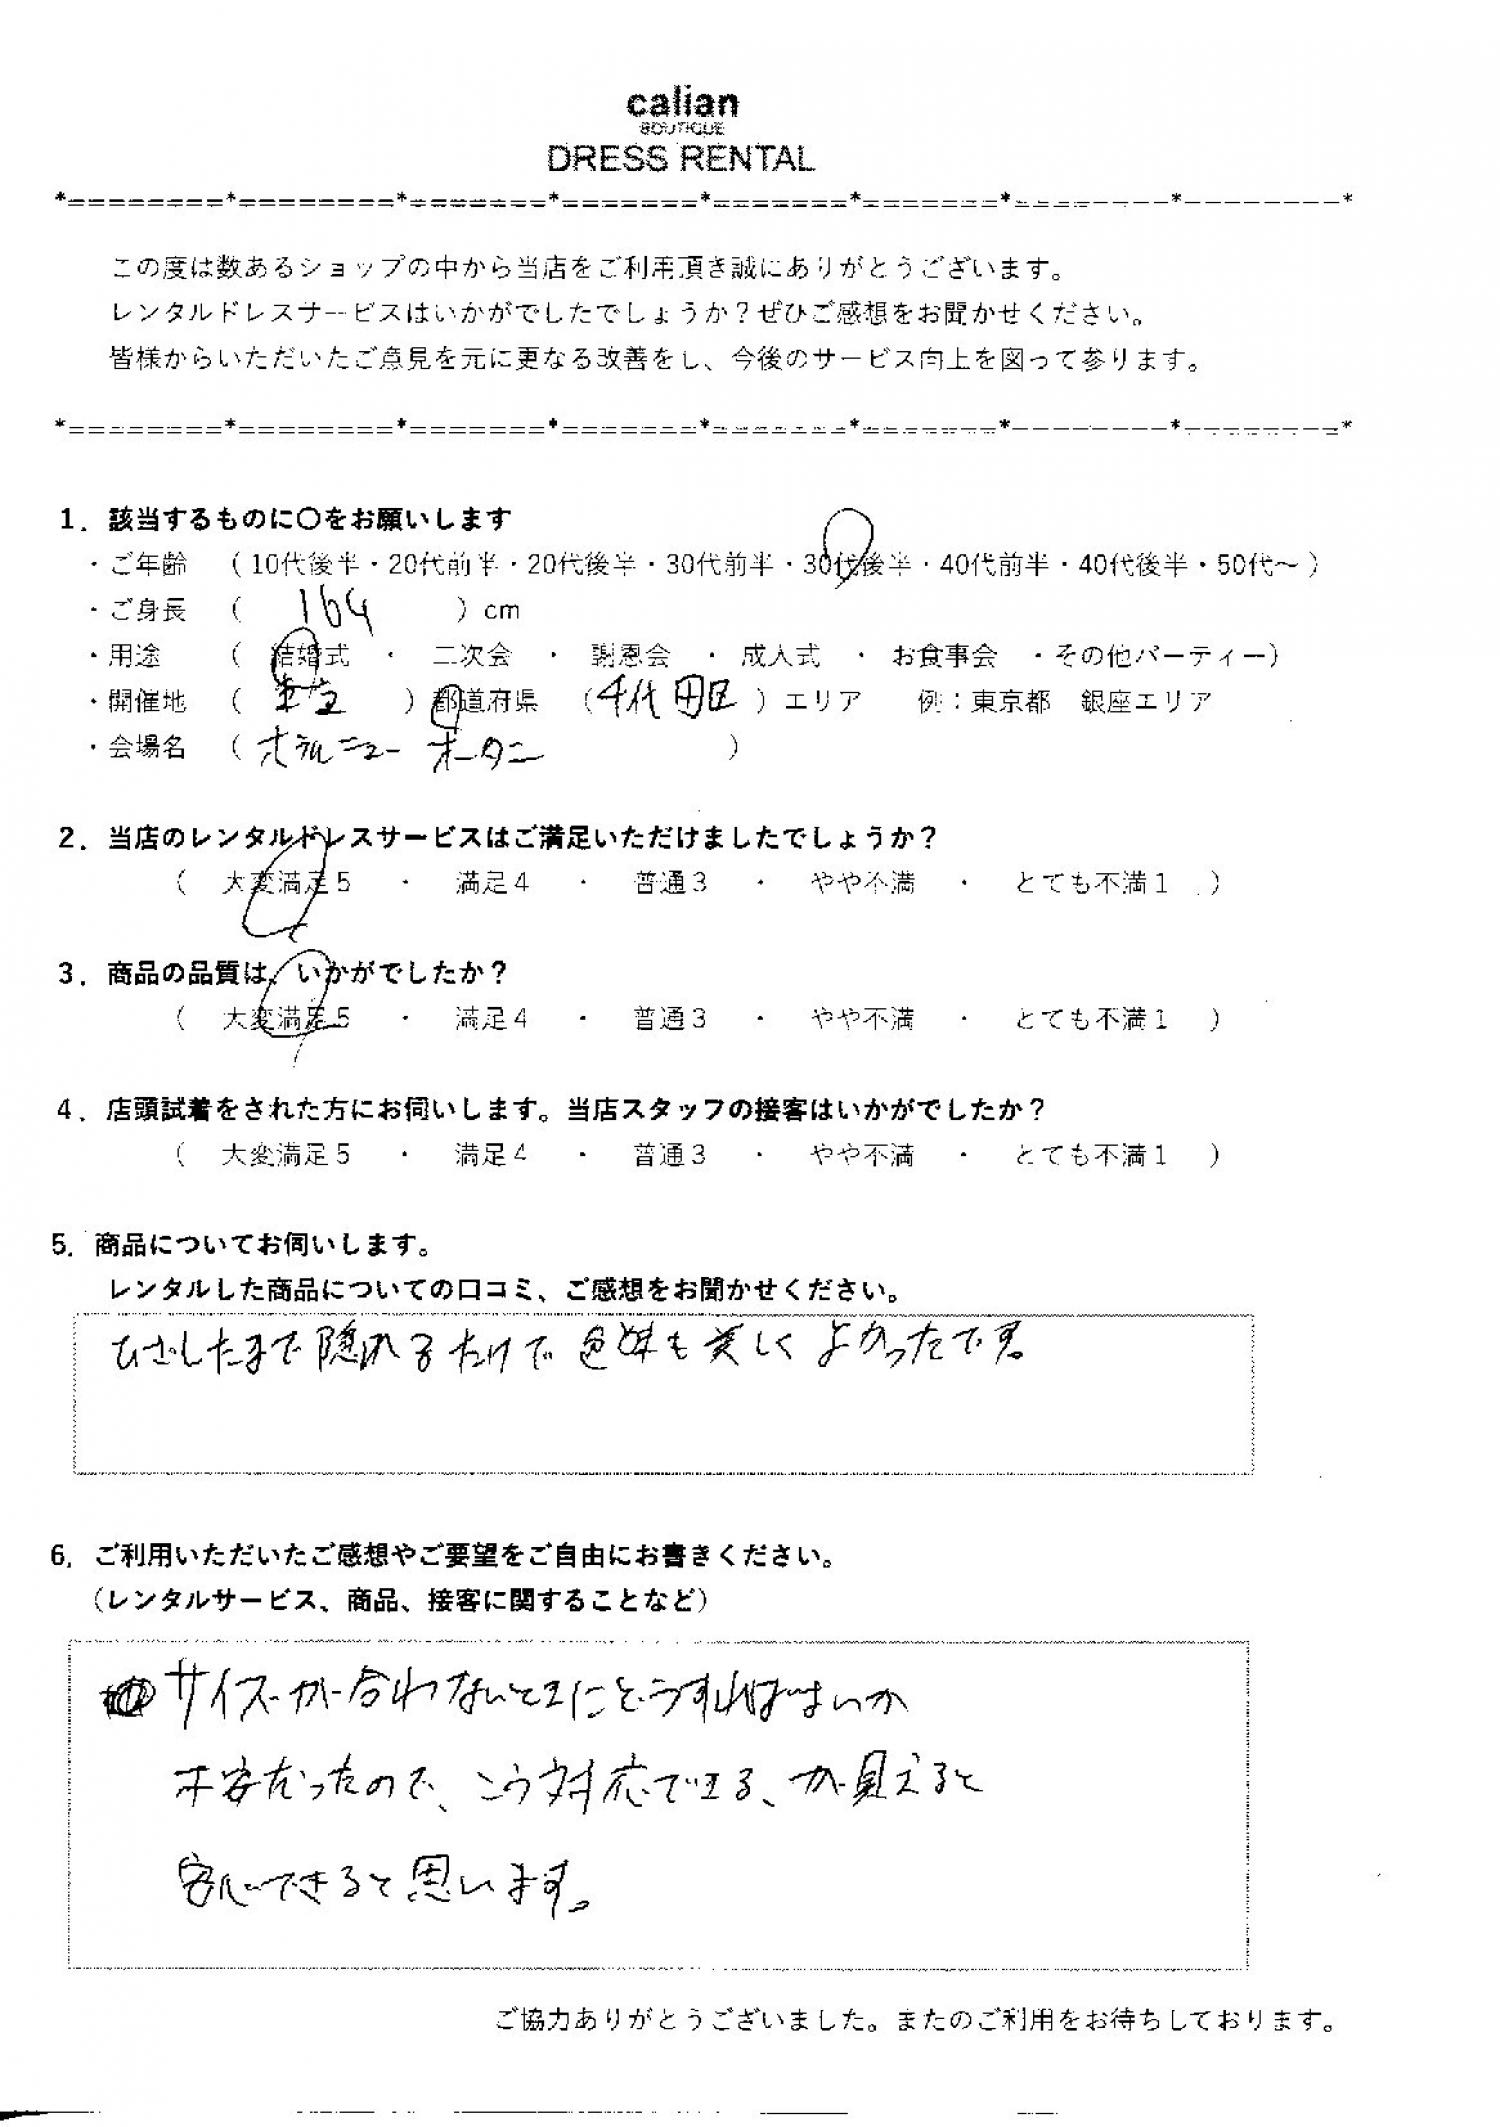 calian
BOUTIQUE
DRESS RENTAL
*========*========*=======*=======*=======*=======*========*========*
この度は数あるショップの中から当店をご利用頂き誠にありがとうございます。
レンタルドレスサービスはいかがでしたでしょうか？ぜひご感想をお聞かせください。
皆様からいただいたご意見を元に更なる改善をし、今後のサービス向上を図って参ります。
*========*========*=======*=======*=======*=======*========*========*
1．該当するものに〇をお願いします
・ご年齢 （10代後半・20代前半・20代後半・30代前半・30代後半・40代前半・40代後半・50代～）
・ご身長 （ 164 ）cm
・用途 （ 結婚式 ・ 二次会 ・ 謝恩会 ・ 成人式 ・ お食事会 ・その他パーティー）
・開催地 （ 東京 ）都道府県 （千代田区）エリア 例：東京都 銀座エリア
・会場名 （ホテルニューオータニ ）
2．当店のレンタルドレスサービスはご満足いただけましたでしょうか？
（ 大変満足５ ・ 満足４ ・ 普通３ ・ やや不満 ・ とても不満１ ）
3．商品の品質は、いかがでしたか？
（ 大変満足５ ・ 満足４ ・ 普通３ ・ やや不満 ・ とても不満１ ）
4．店頭試着をされた方にお伺いします。当店スタッフの接客はいかがでしたか？
（ 大変満足５ ・ 満足４ ・ 普通３ ・ やや不満 ・ とても不満１ ）
5．商品についてお伺いします。
レンタルした商品についての口コミ、ご感想をお聞かせください。
ひざしたまで隠れるたけで色味も美しくよかったです。
6．ご利用いただいたご感想やご要望をご自由にお書きください。
（レンタルサービス、商品、接客に関することなど）
サイズが合わないときにどうすればよいか
不安だったので、こう対応できる、が見えると
安心できると思います。
ご協力ありがとうございました。またのご利用をお待ちしております。